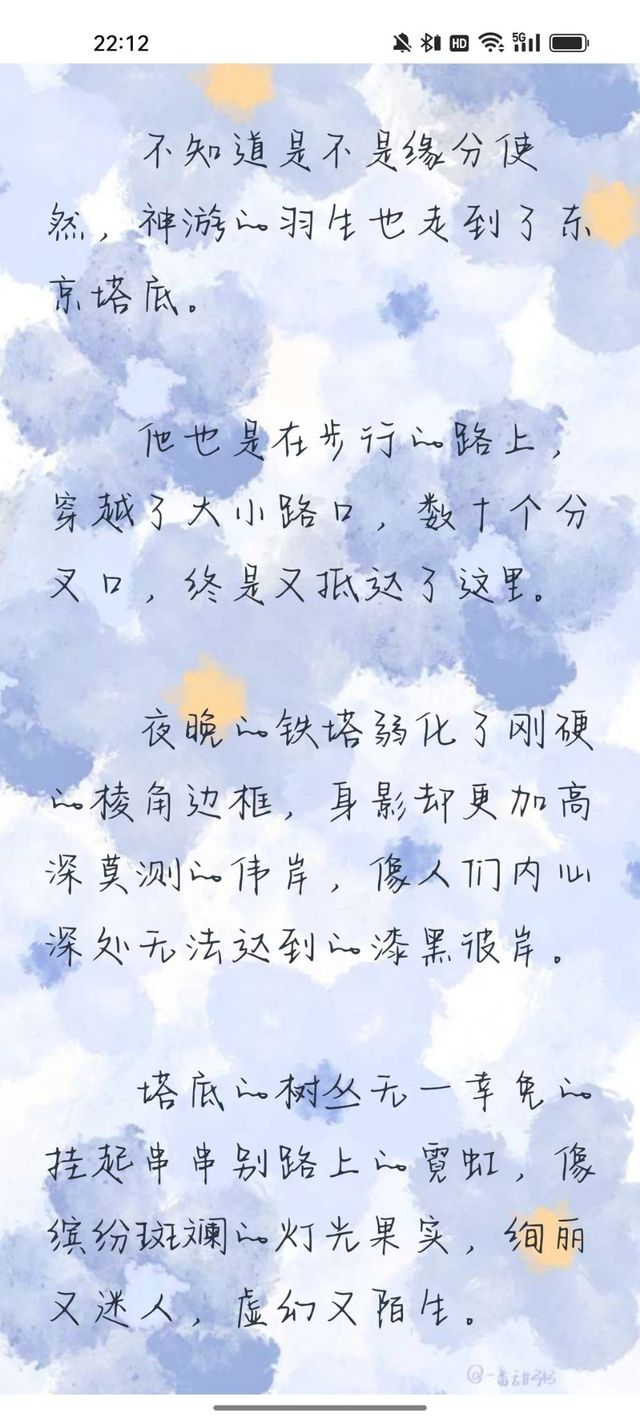 22:12
HD 5G
不知道是不是缘分使
然，神游的羽生也走到了东
京塔底。
他也是在步行的路上，
穿越了大小路口，数十个分
叉口，终是又抵达了这里。
夜晚的铁塔弱化了刚硬
的棱角边框，身影却更加高
深莫测的伟岸，像人们内心
深处无法达到的漆黑彼岸。
塔底的树丛无一幸免的
挂起串串别路上的霓虹，像
缤纷斑斓的灯光果实，绚丽
又迷人，虚幻又陌生。